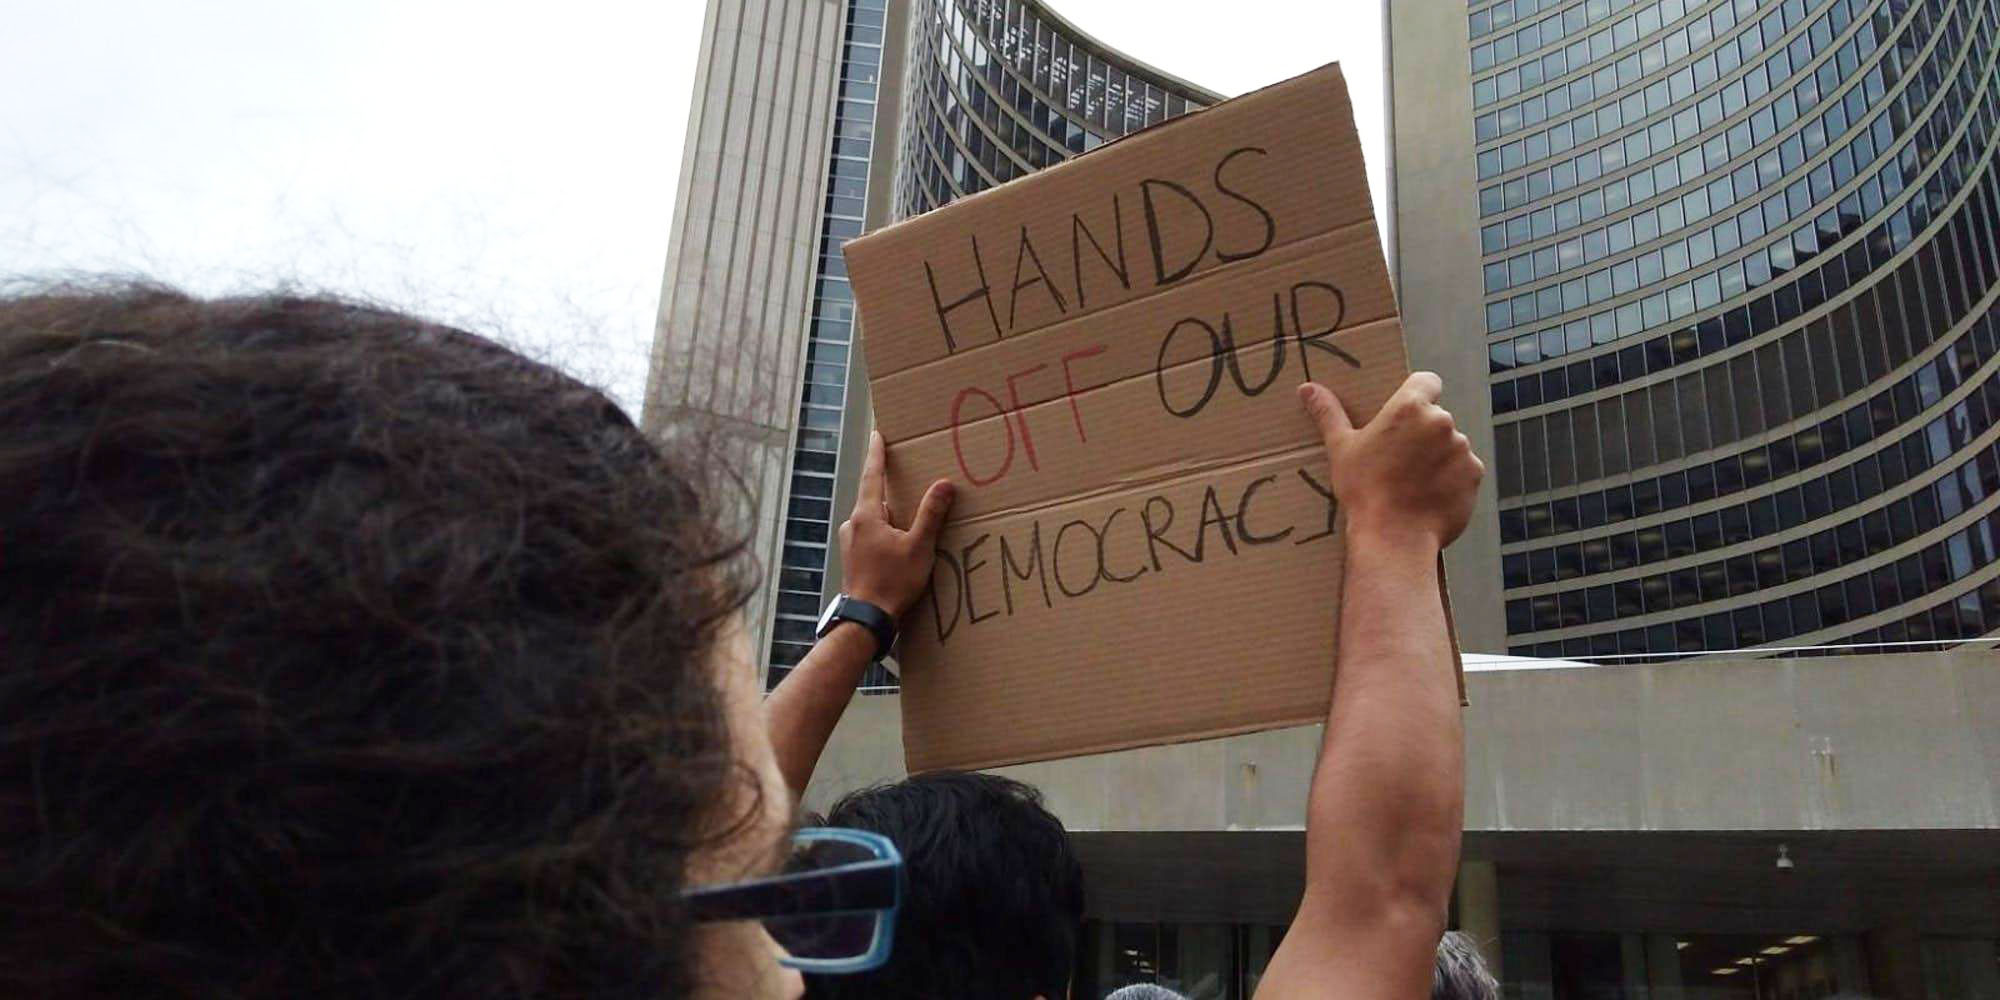 HANDS
OFF OUR
DEMOCRACY